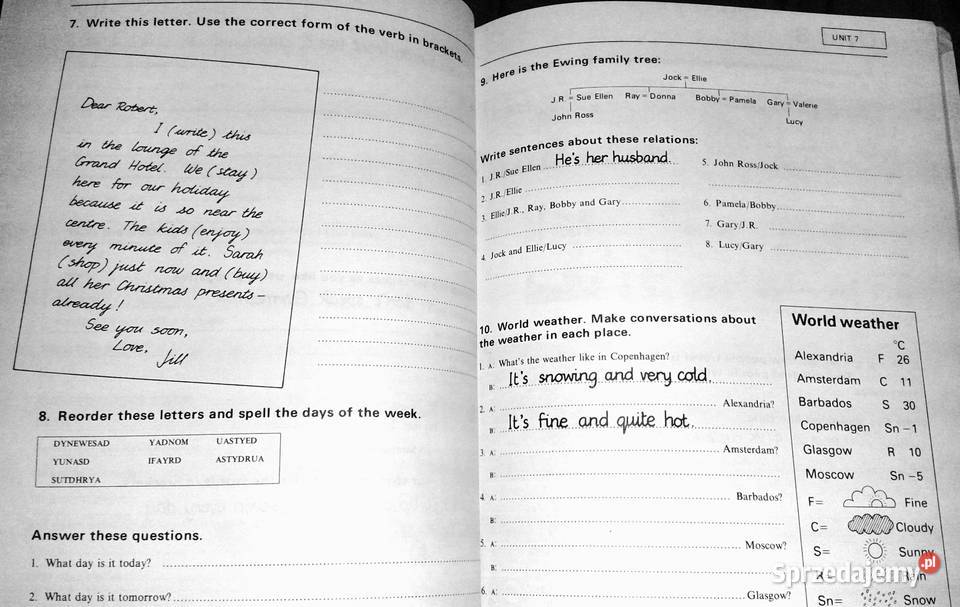 7. Write this letter. Use the correct form of the verb in brackets.
Dear Robert,
I (write) this
in the lounge of the
Grand Hotel. We (stay)
here for our holiday
because it is so near the
centre. The kids (enjoy)
every minute of it. Sarah
(shop) just now and (buy)
all her Christmas presents –
already!
See you soon,
Love,
Jill
8. Reorder these letters and spell the days of the week.
DYNEWESAD YADNOM UASTYED
YUNASD IFAYRD ASTYDRUA
SUTDHRYA
Answer these questions.
1. What day is it today?
2. What day is it tomorrow?
UNIT 7
9. Here is the Ewing family tree:
Jock = Ellie
J.R. = Sue Ellen Ray = Donna Bobby = Pamela Gary = Valerie
John Ross Lucy
Write sentences about these relations:
1. J.R./Sue Ellen He's her husband.
2. J.R./Ellie
3. Ellie/J.R., Ray, Bobby and Gary
4. Jock and Ellie/Lucy
5. John Ross/Jock
6. Pamela/Bobby
7. Gary/J.R.
8. Lucy/Gary
10. World weather. Make conversations about
the weather in each place.
1. A: What's the weather like in Copenhagen?
B: It's snowing and very cold.
2. A: Alexandria?
B: It's fine and quite hot.
3. A: Amsterdam?
B:
4. A: Barbados?
B:
5. A: Moscow?
B:
6. A: Glasgow?
World weather
°C
Alexandria F 26
Amsterdam C 11
Barbados S 30
Copenhagen Sn –1
Glasgow R 10
Moscow Sn –5
F= Fine
C= Cloudy
S= Sunny
Sn= Snow
Sprzedajemy.pl